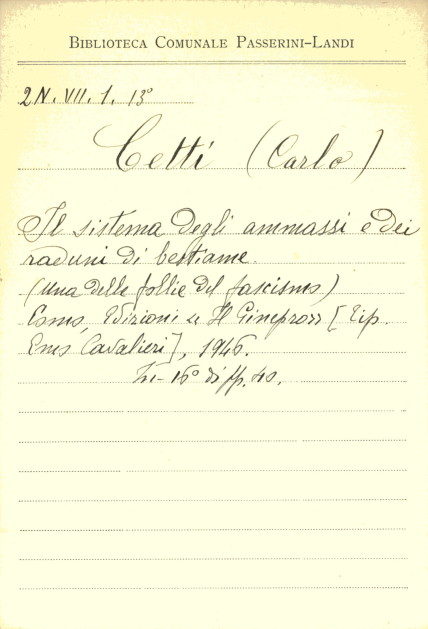 BIBLIOTECA COMUNALE PASSERINI-LANDI
2N. VII. 1. 13°
Cetti (Carlo)
Il sistema degli ammassi e dei
raduni di bestiame.
(una delle follie del fascismo)
Como, Edizioni Il [Tip.
Emo Cavalleri], 1946.
In-16° di pp. 40.